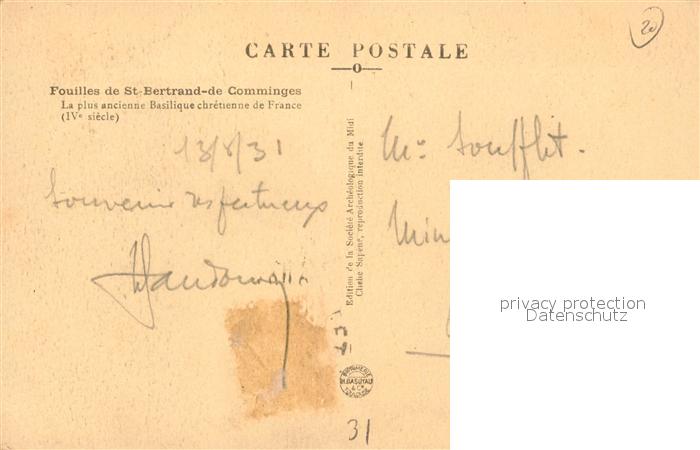 20
CARTE POSTALE
Fouilles de St-Bertrand-de Comminges
La plus ancienne Basilique chrétienne de France
(IVe siècle)
13/8/31
Souvenir respectueux
Edition de la Société Archéologique du Midi
Cliché Sapène, reproduction interdite
Mr Soufflet.
privacy protection
Datenschutz
31